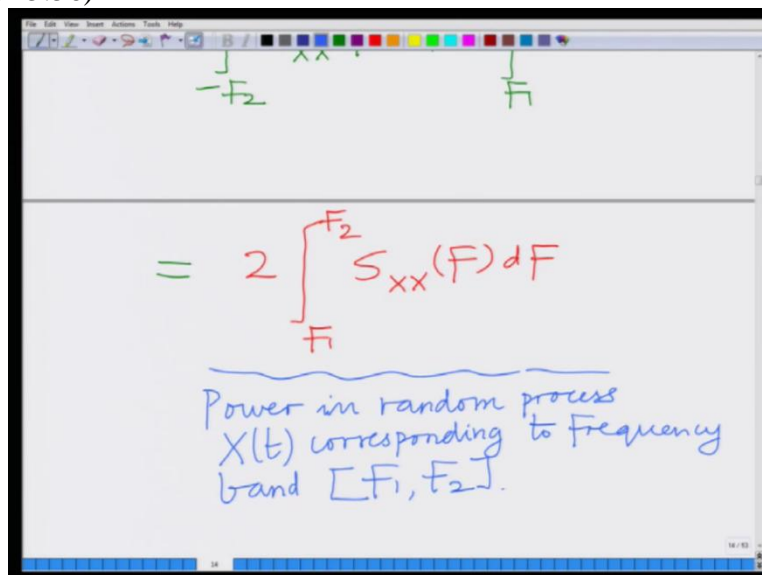 File Edit View Insert Actions Tools Help
XX
-F₂ F₁
= 2 ∫_{F₁}^{F₂} S_{XX}(F) dF
Power in random process
X(t) corresponding to Frequency
band [F₁, F₂].
14 / 53
14